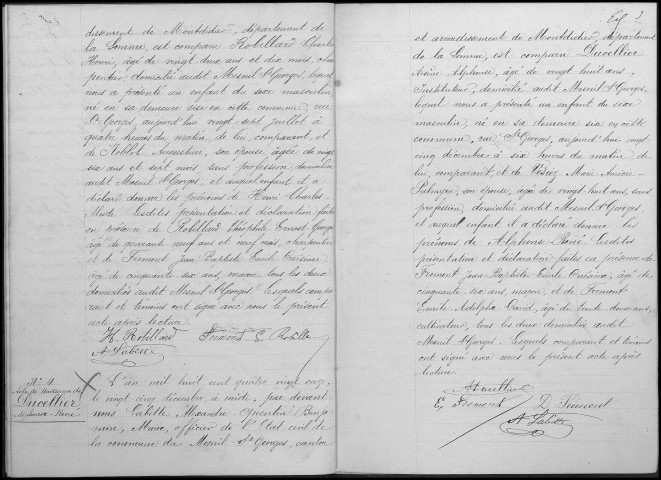 dissement de Montdidier, département de
la Somme, est comparu Robillard Charles
Henri, âgé de vingt deux ans et dix mois, char
pentier, domicilié audit Mesnil St Georges, lequel
nous a présenté un enfant du sexe masculin
né en sa demeure sise en cette commune, rue
St Georges, aujourd'hui vingt sept juillet à
quatre heures du matin, de lui, comparant, et
de Roblot Augustine, son épouse, âgée de vingt
six ans et sept mois, sans profession, domiciliée
audit Mesnil St Georges, et auquel enfant il a
déclaré donner les prénoms de Henri Charles
Lesdites présentation et déclaration faites
en présence de Robillard Théophile Ernest Georges
âgé de quarante neuf ans et neuf mois, charpentier
et de Frémont Jean Baptiste Emile Onésime,
âgé de cinquante six ans, maçon, tous les deux
domiciliés audit Mesnil St Georges. Lesquels compa
rant et témoins ont signé avec nous le présent
acte après lecture.
H. Robillard Frémont E. Robillard
A Labitte
N° 4
Acte de Naissance de
Ducellier
Alphonse-René
L'an mil huit cent quatre vingt onze,
le vingt cinq décembre à midi, par devant
nous Labitte Alexandre Quentin Benja
min, Maire, officier de l'Etat civil de
la commune du Mesnil-St Georges, canton
et arrondissement de Montdidier, département
de la Somme, est comparu Ducellier
Alphonse, âgé de vingt huit ans,
Instituteur, domicilié audit Mesnil St Georges,
lequel nous a présenté un enfant du sexe
masculin, né en sa demeure sise en cette
commune, rue St Georges, aujourd'hui vingt
cinq décembre à six heures du matin de
lui, comparant, et de Marie
son épouse, âgée de vingt huit ans, sans
profession, domiciliée audit Mesnil St Georges
et auquel enfant il a déclaré donner les
prénoms de Alphonse-René. Lesdites
présentation et déclaration faites en présence de
Frémont Jean Baptiste Emile Onésime, âgé de
cinquante six ans, maçon, et de Frémont
Emile Adolphe David, âgé de trente deux ans,
cultivateur, tous les deux domiciliés audit
Mesnil St Georges. Lesquels comparant et témoins
ont signé avec nous le présent acte après
lecture.
Ducellier
E. Frémont D. Frémont
A Labitte